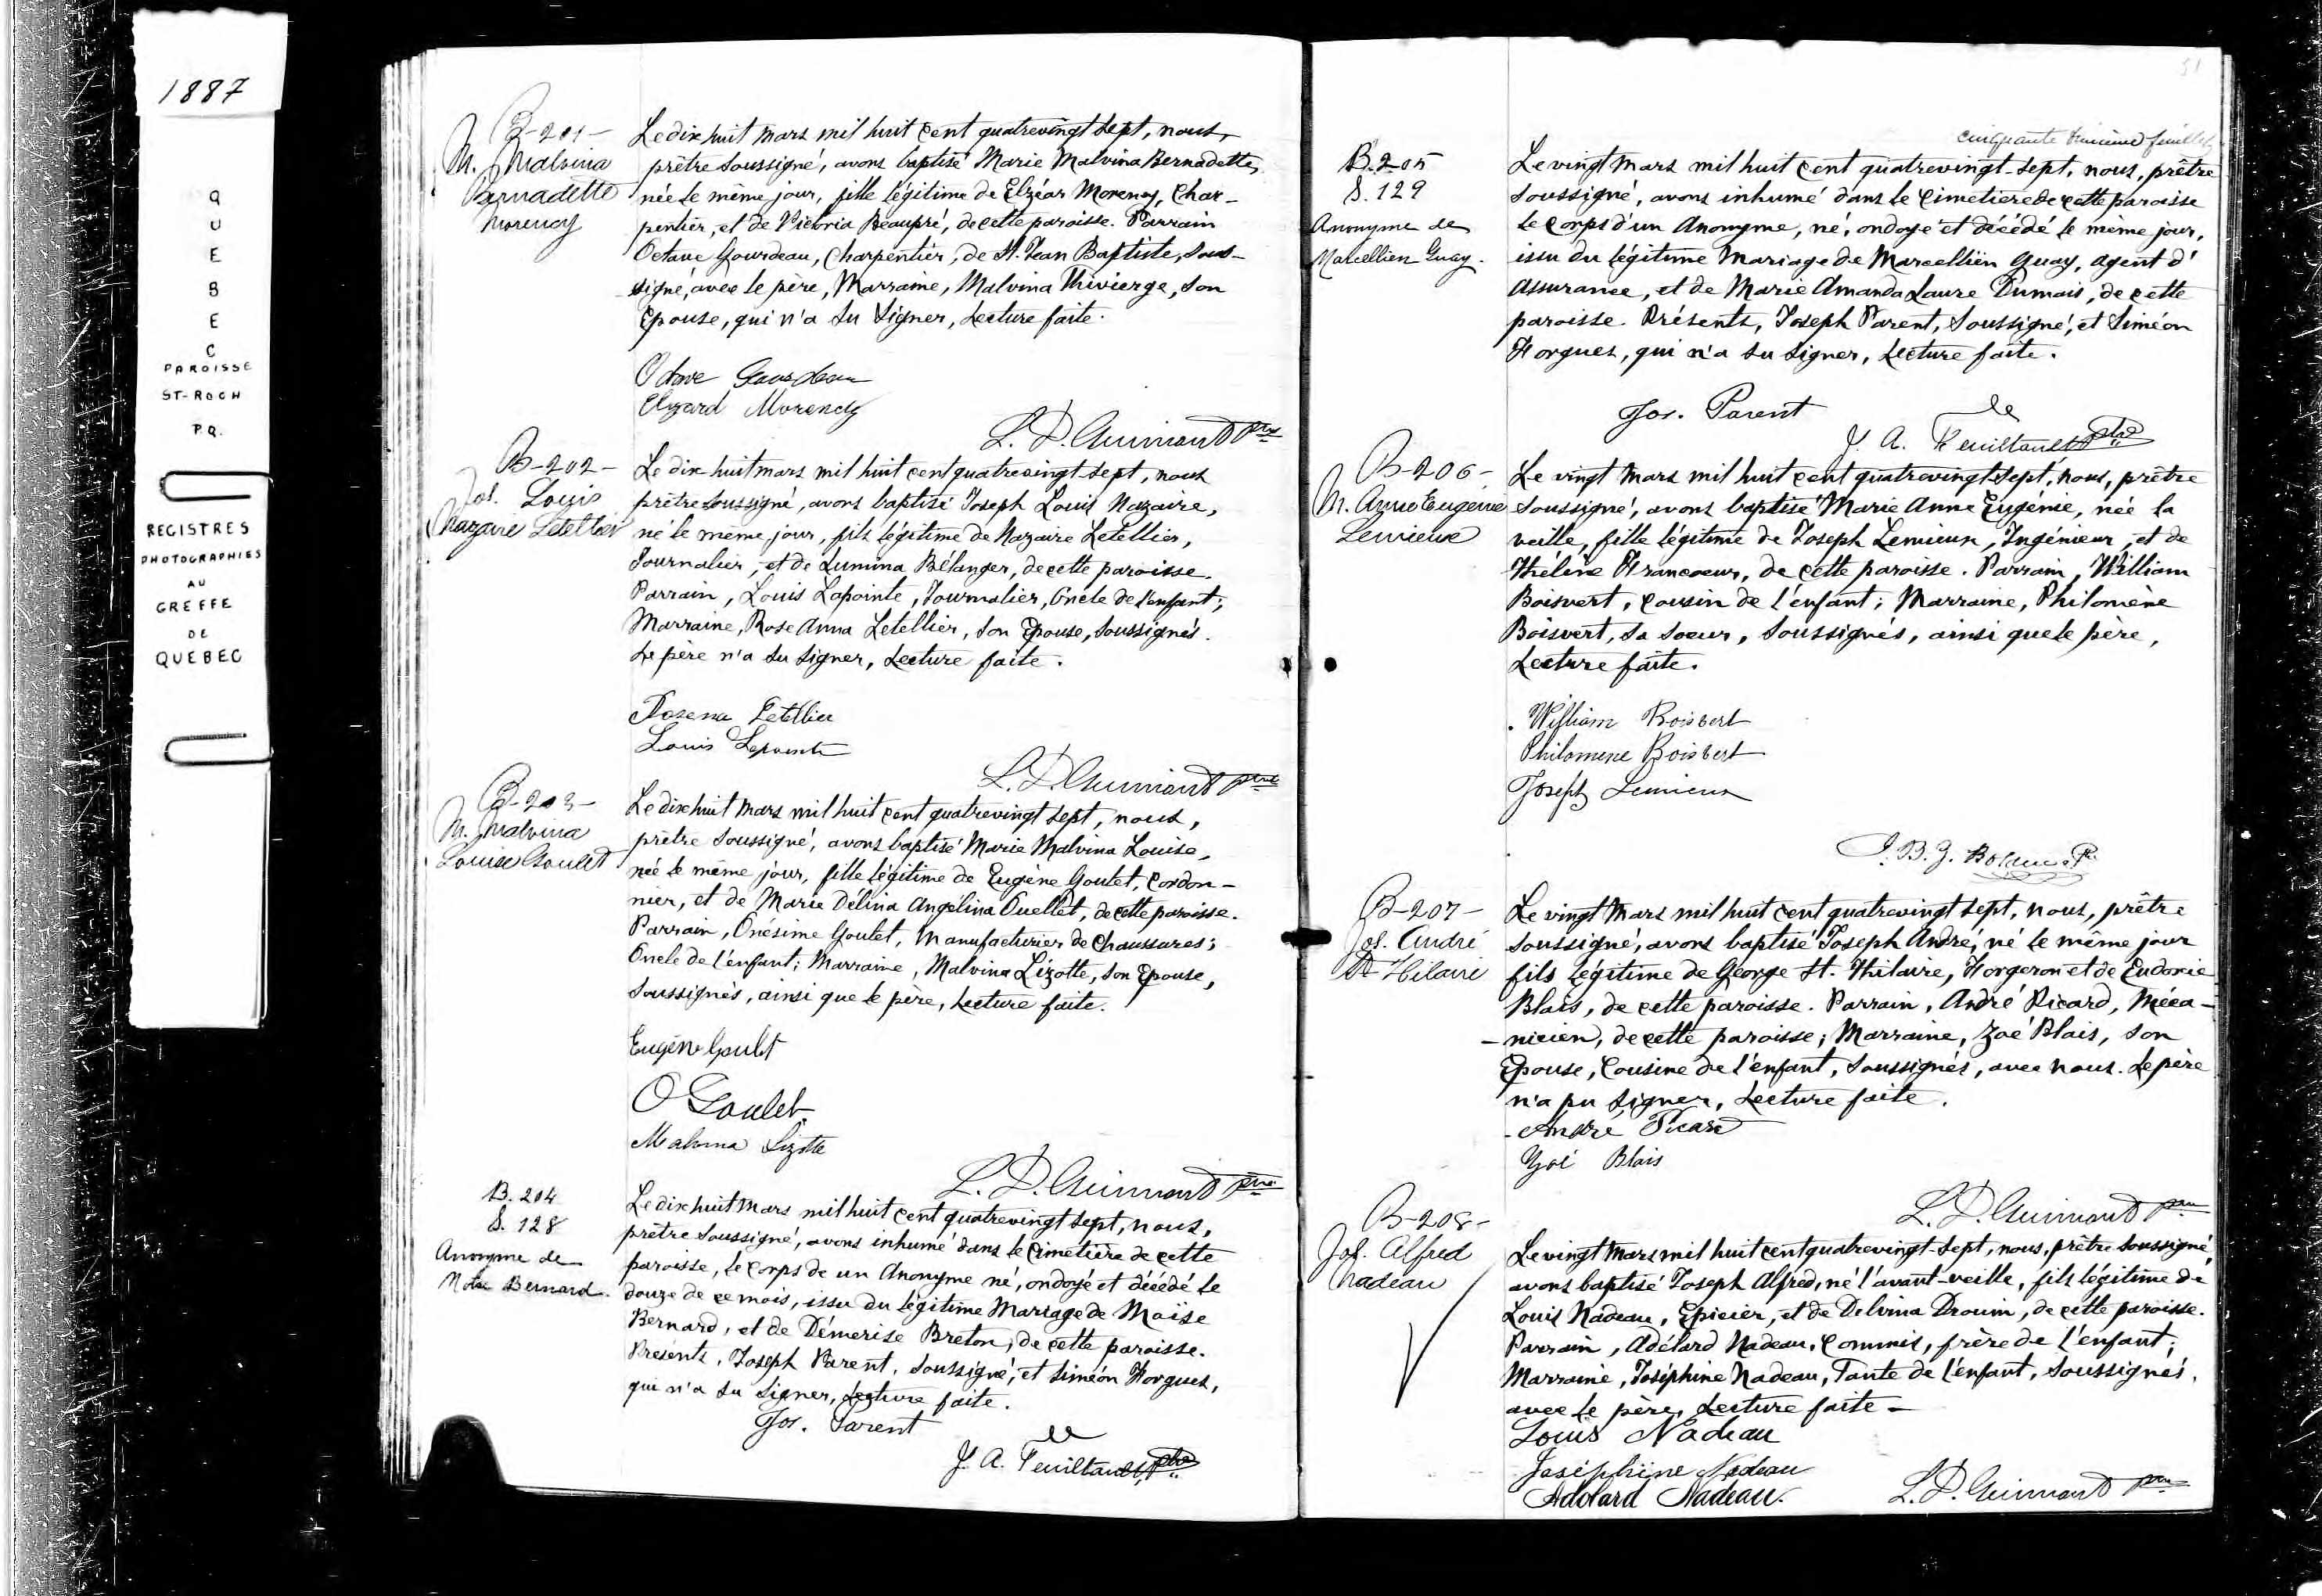 1887
QUEBEC
PAROISSE
ST-ROCH
P.Q.
REGISTRES
PHOTOGRAPHIES
AU
GREFFE
DE
QUEBEC
B-201-
M. Malvina
Bernadette
Morency
Le dix huit mars mil huit cent quatrevingt sept, nous,
prêtre soussigné, avons baptisé Marie Malvina Bernadette,
née le même jour, fille légitime de Elzéar Morency, Char-
pentier, et de Victoria Beaupré, de cette paroisse. Parrain
Octave Gourdeau, Charpentier, de St. Jean Baptiste, sous-
signé, avec le père, Marraine, Malvina Thivierge, son
Epouse, qui n'a su signer, Lecture faite.
Octave Gourdeau
Elzard Morency
L. D. Guimont ptre
B-202-
Jos. Louis
Nazaire Letellier
Le dix huit mars mil huit cent quatrevingt-sept, nous
prêtre soussigné, avons baptisé Joseph Louis Nazaire,
né le même jour, fils légitime de Nazaire Letellier,
Journalier, et de Lumina Bélanger, de cette paroisse.
Parrain, Louis Lapointe, Journalier, Oncle de l'enfant;
Marraine, Rose Anna Letellier, son Epouse, soussignés.
Le père n'a su signer, Lecture faite.
Rosena Letellier
Louis Lapointe
L. D. Guimont ptre
B-203-
M. Malvina
Louise Goulet
Le dix huit mars mil huit cent quatrevingt sept, nous,
prêtre soussigné, avons baptisé Marie Malvina Louise,
née le même jour, fille légitime de Eugène Goulet, Cordon-
nier, et de Marie Délina Angélina Ouellet, de cette paroisse.
Parrain, Onésime Goulet, Manufacturier de Chaussures;
Oncle de l'enfant; Marraine, Malvina Lizotte, son Epouse,
soussignés, ainsi que le père, Lecture faite.
Eugène Goulet
O Goulet
Malvina Lizotte
L. D. Guimont ptre
B. 204
S. 128
Anonyme de
Bernard.
Le dix huit Mars mil huit cent quatrevingt sept, nous,
prêtre soussigné, avons inhumé dans le Cimetière de cette
paroisse, le corps de un Anonyme né, ondoyé et décédé le
douze de ce mois, issu du légitime Mariage de Moïse
Bernard, et de Démerise Breton, de cette paroisse.
Présents, Joseph Parent, soussigné, et Siméon Forgues,
qui n'a su signer, Lecture faite.
Jos. Parent
J. A. Feuiltault, Ptre
51
cinquante unième feuillet
B. 205
S. 129
Anonyme de
Marcellien Guay.
Le vingt mars mil huit cent quatrevingt-sept, nous, prêtre
soussigné, avons inhumé dans le Cimetiere de cette paroisse
le corps d'un Anonyme, né, ondoyé et décédé le même jour,
issu du légitime Mariage de Marcellien Guay, agent d'
Assurance, et de Marie Amanda Laure Dumais, de cette
paroisse. Présents, Joseph Parent, soussigné, et Siméon
Forgues, qui n'a su signer, Lecture faite.
Jos. Parent
J. A. Feuiltault Ptre
B-206-
M. Anne Eugenie
Lemieux
Le vingt Mars mil huit cent quatrevingt-sept, nous, prêtre
soussigné, avons baptisé Marie Anne Eugénie, née la
veille, fille légitime de Joseph Lemieux, Ingénieur, et de
Hélène Francoeur, de cette paroisse. Parrain, William
Boisvert, cousin de l'enfant; Marraine, Philomène
Boisvert, sa soeur, soussignés, ainsi que le père,
Lecture faite.
William Boisvert
Philomene Boisvert
Joseph Lemieux
B-207-
Jos. André
St Hilaire
Le vingt Mars mil huit cent quatrevingt sept, nous, prêtre
soussigné, avons baptisé Joseph André, né le même jour
fils légitime de George St. Hilaire, Forgeron et de Eudoxie
Blais, de cette paroisse. Parrain, André Picard, Méca-
-nicien, de cette paroisse; Marraine, Zoé Blais, son
Epouse, Cousine de l'enfant, soussignés, avec nous. Le père
n'a pu signer, Lecture faite.
André Picard
Zoé Blais
L. D. Guimont ptre
B-208-
Jos. Alfred
Nadeau
Le vingt Mars mil huit cent quatrevingt-sept, nous, prêtre soussigné
avons baptisé Joseph Alfred, né l'avant-veille, fils légitime de
Louis Nadeau, Epicier, et de Delvina Drouin, de cette paroisse.
Parrain, Adélard Nadeau, Commis, frère de l'enfant;
Marraine, Joséphine Nadeau, Tante de l'enfant, soussignés,
avec le père, Lecture faite-
Louis Nadeau
Joséphine Nadeau
Adolard Nadeau.
L. D. Guimont ptre